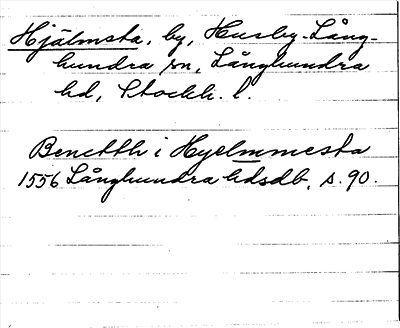 Hjälmsta, by, Husby-Lång-
hundra sn, Långhundra
hd, Stockh. l.
Benetth i Hyelmmesta
1556 Långhundra hdsdb. s. 90.